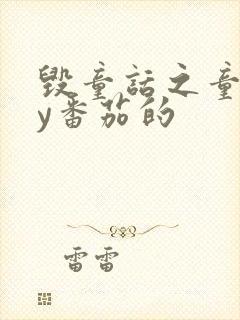 毁童话之童
y番茄的
雷雷